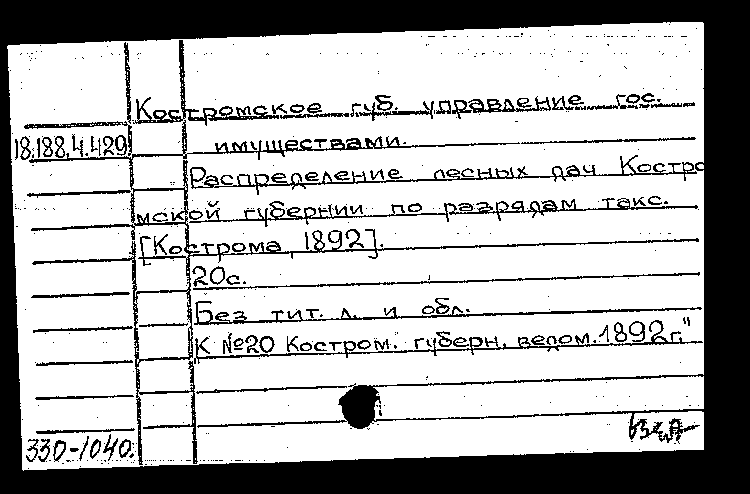 Костромское губ. управление гос.
18.188.4.429 имуществами.
Распределение лесных дач Костро
мской губернии по разрядам такс.
[Кострома, 1892].
20с.
Без тит. л. и обл.
К №20 Костром. губерн. ведом. 1892г."
330-1040.